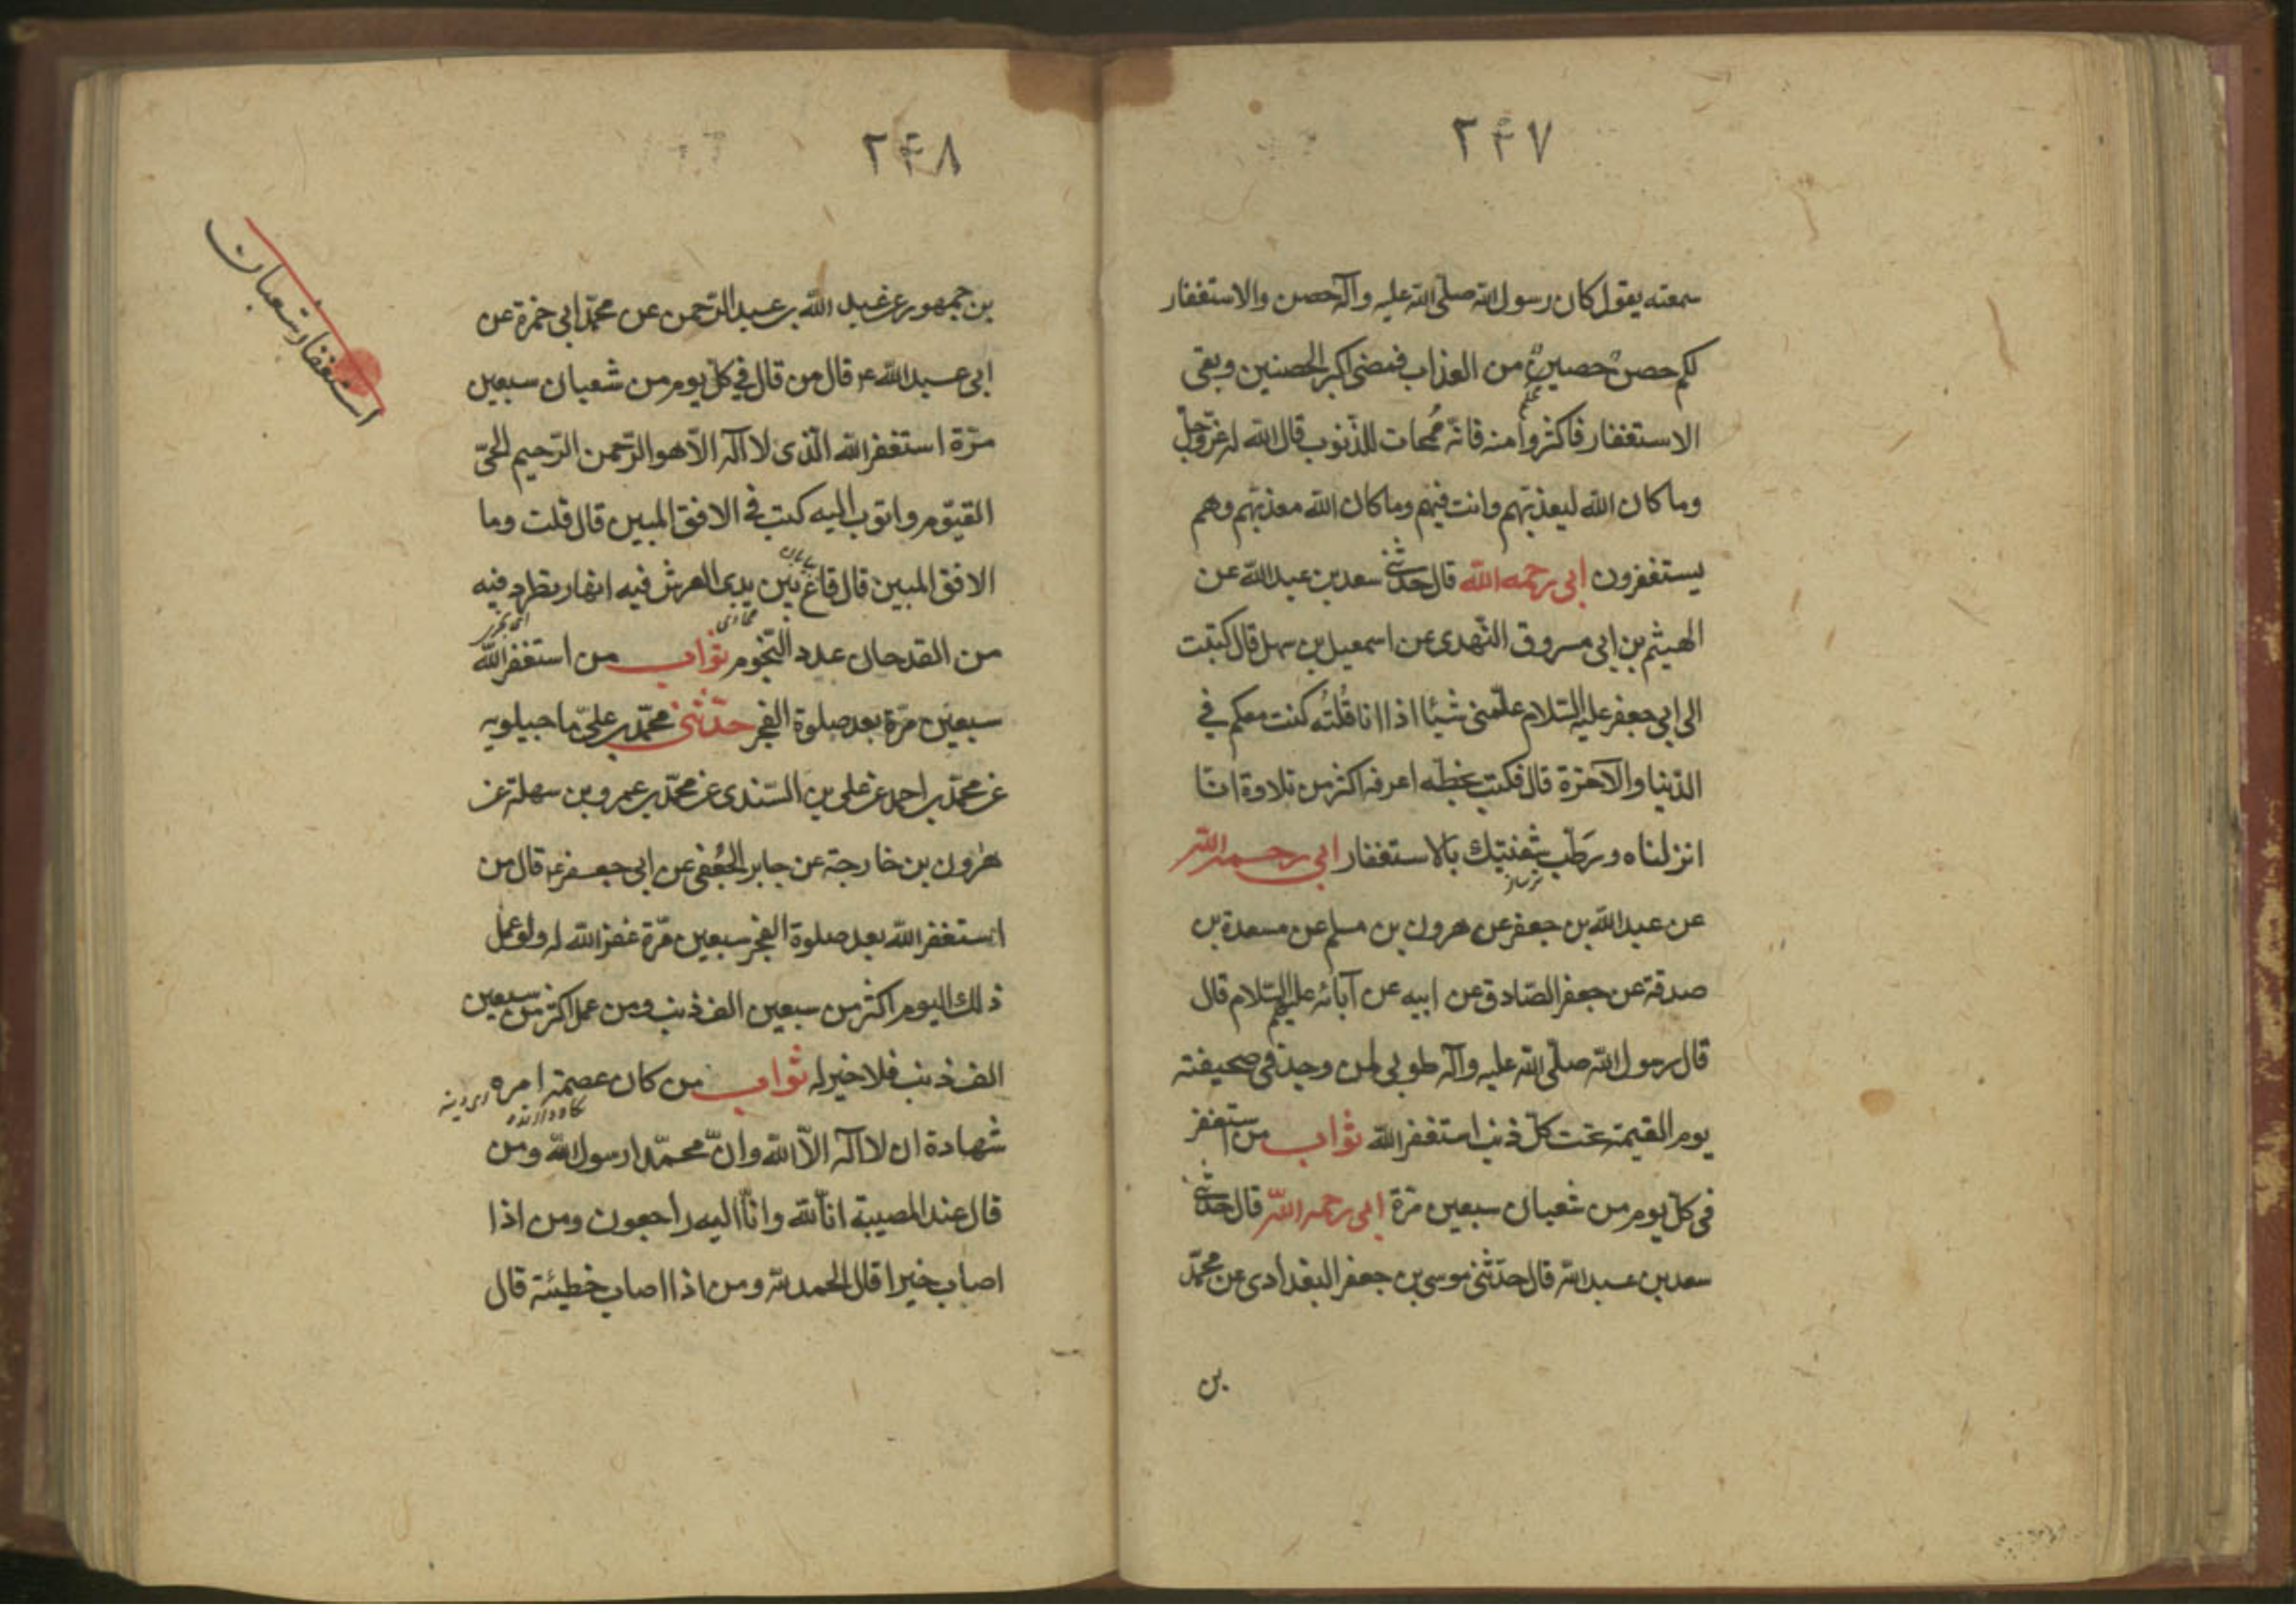 ۲۴۷
سمعته يقول كان رسول الله صلّى الله عليه وآله حصن والاستغفار
لكم حصن حصينن من العذاب فمضى اكبر الحصنين وبقى
الاستغفار فاكثروا منه فانّه ممحات للذّنوب قال الله عزّوجلّ
وما كان الله ليعذبهم وانت فيهم وما كان الله معذبهم وهم
يستغفرون ابى رحمه الله قال حدثنى سعد بن عبدالله عن
الهيثم بن ابى مسروق النّهدى عن اسمعيل بن سهل قال كتبت
الى ابى جعفر عليه السّلام علّمنى شيئا اذا انا قُلتُه كنت معكم فى
الدّنيا والآخرة قال فكتب بخطّه اعرفه اكثر من تلاوة انّا
انزلناه ورَطّب شفتيك بالاستغفار ابى رحمه الله
عن عبدالله بن جعفر عن هرون بن مسلم عن مسعدة بن
صدقة عن جعفر الصّادق عن ابيه عن آبائه عليهم السّلام قال
قال رسول الله صلّى الله عليه وآله طوبى لمن وجد فى صحيفته
يوم القيمة تحت كلّ ذنب استغفر الله ثواب من استغفر
فى كلّ يوم من شعبان سبعين مرّة ابى رحمه الله قال حدثنى
سعد بن عبدالله قال حدّثنى موسى بن جعفر البغدادى عن محمّد
بن
۲۴۸
استغفار شعبان
بن جمهور عن عبدالله بن عبدالرّحمن عن محمّد ابى حمزة عن
ابى عبدالله ع قال من قال فى كلّ يوم من شعبان سبعين
مرّة استغفر الله الّذى لا اله الّا هو الرّحمن الرّحيم الحىّ
القيّوم واتوب اليه كتب فى الافق المبين قال قلت وما
الافق المبين قال قاع بين يدى العرش فيه انهار تطرد فيه
من القدحان عدد النّجوم ثواب من استغفر الله
سبعين مرّة بعد صلوة الفجر حدّثنى محمّد بن علىّ ماجيلويه
عن محمّد بن احمد عن على بن السّندى عن محمّد بن عمرو بن سهلة عن
هرون بن خارجة عن جابر الجُعفى عن ابى جعفر ع قال من
استغفر الله بعد صلوة الفجر سبعين مرّة غفر الله له ولو عمل
ذلك اليوم اكثر من سبعين الف ذنب ومن عمل اكثر من سبعين
الف ذنب فلا خير له ثواب من كان عصمة امره
شهادة ان لا اله الّا الله وانّ محمّدا رسول الله ومن
قال عند المصيبة انّا لله وانّا اليه راجعون ومن اذا
اصاب خيرا قال الحمد لله ومن اذا اصاب خطيئة قال